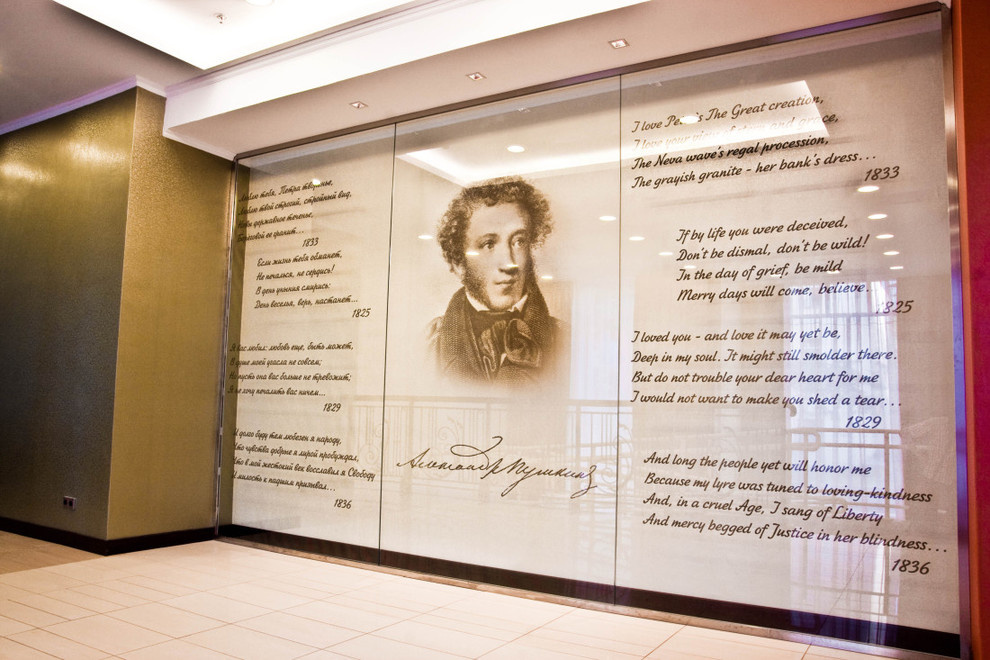 Люблю тебя, Петра творенье,
Люблю твой строгий, стройный вид,
Невы державное теченье,
Береговой ее гранит...
1833
Если жизнь тебя обманет,
Не печалься, не сердись!
В день уныния смирись:
День веселья, верь, настанет...
1825
Я вас любил: любовь еще, быть может,
В душе моей угасла не совсем;
Но пусть она вас больше не тревожит;
Я не хочу печалить вас ничем...
1829
И долго буду тем любезен я народу,
Что чувства добрые я лирой пробуждал,
Что в мой жестокий век восславил я Свободу
И милость к падшим призвал...
1836
Александр Пушкин
I love Peter's The Great creation,
I love your view of stern and grace,
The Neva wave's regal procession,
The grayish granite - her bank's dress...
1833
If by life you were deceived,
Don't be dismal, don't be wild!
In the day of grief, be mild
Merry days will come, believe...
1825
I loved you - and love it may yet be,
Deep in my soul. It might still smolder there.
But do not trouble your dear heart for me
I would not want to make you shed a tear...
1829
And long the people yet will honor me
Because my lyre was tuned to loving-kindness
And, in a cruel Age, I sang of Liberty
And mercy begged of Justice in her blindness...
1836